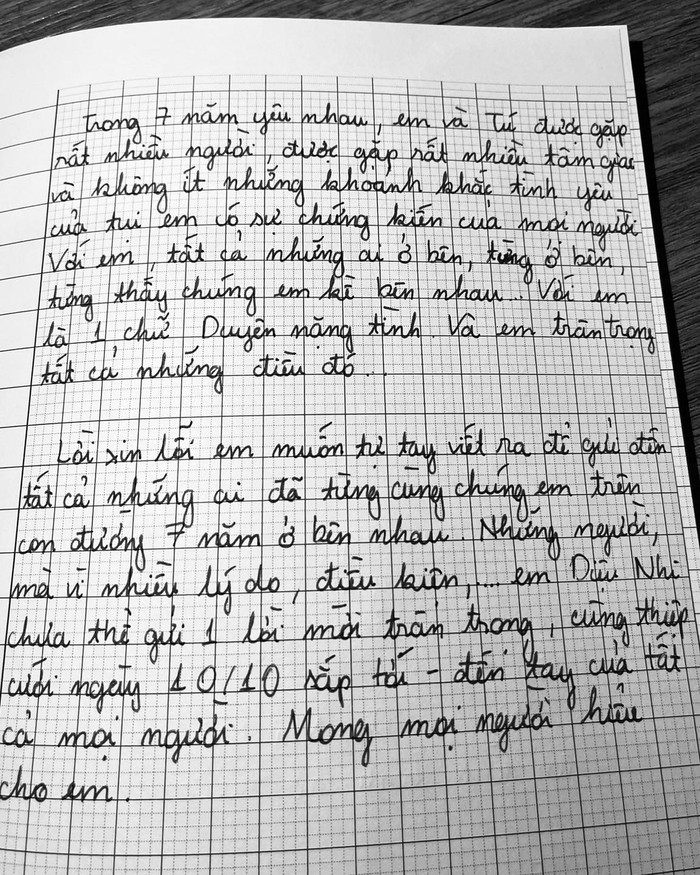 Trong 7 năm yêu nhau, em và Tú được gặp
rất nhiều người, được gặp rất nhiều tâm giao
và không ít những khoảnh khắc tình yêu
của tụi em có sự chứng kiến của mọi người.
Với em, tất cả những ai ở bên, từng ở bên,
từng thấy chúng em kề bên nhau... Với em
là 1 chữ Duyên nặng tình. Và em trân trọng
tất cả những điều đó...
Lời xin lỗi em muốn tự tay viết ra để gửi đến
tất cả những ai đã từng cùng chúng em trên
con đường 7 năm ở bên nhau. Những người,
mà vì nhiều lý do, điều kiện,.... em Diệu Nhi
chưa thể gửi 1 lời mời trân trọng, cùng thiệp
cưới ngày 10/10 sắp tới - đến tay của tất
cả mọi người. Mong mọi người hiểu
cho em.